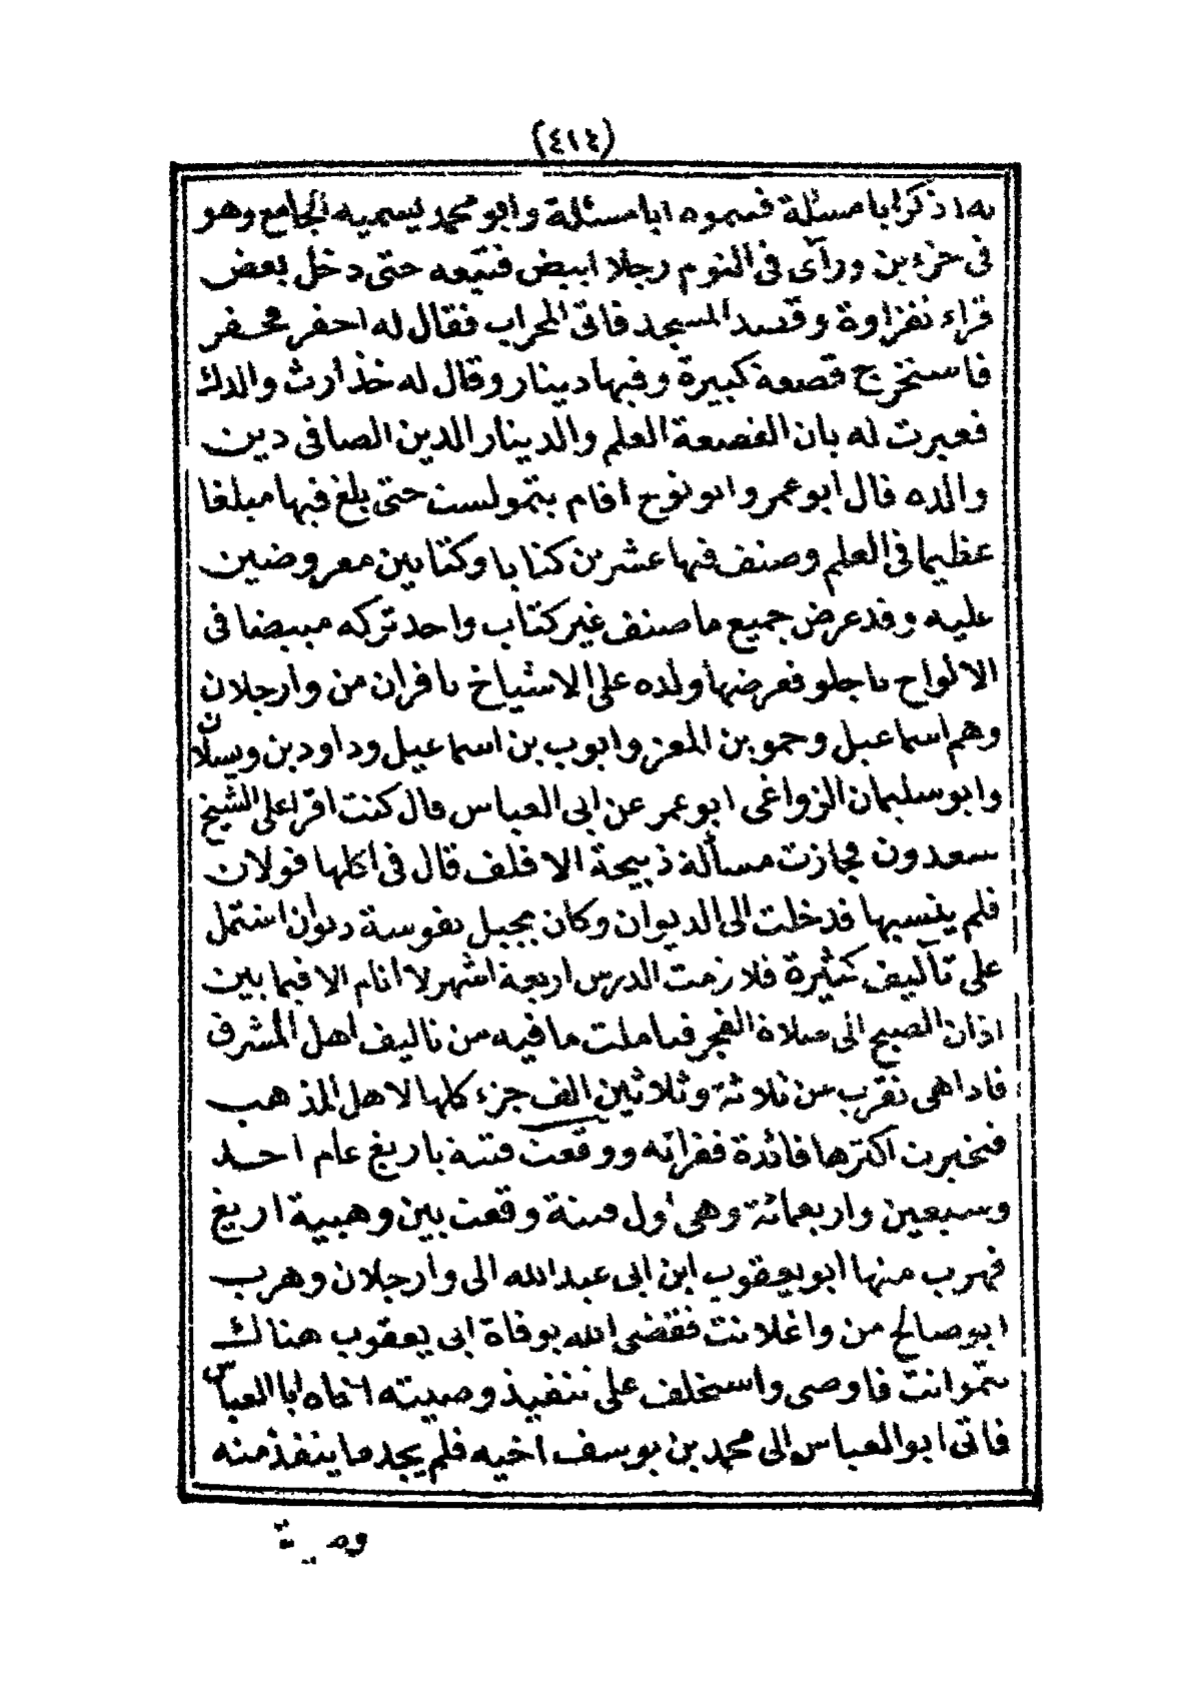 (٤١٤)
به اذ ذكر ابا مسئلة فسموه ابا مسئلة وابو محمد يسميه الجامع وهو
فى جزءين ورآى فى النوم رجلا ابيض فتبعه حتى دخل بعض
قراء نفزاوة وقصد المسجد فاتى المحراب فقال له احفر فحفر
فاستخرج قصعة كبيرة وفيها دينار وقال له خذ ارث والدك
فعبرت له بان القصعة العلم والدينار الدين الصافى دين
والده قال ابو عمر وابو نوح اقام بتمولست حتى بلغ فيها مبلغا
عظيما فى العلم وصنف فيها عشرين كتابا وكتابين معروضين
عليه وقد عرض جميع ما صنف غير كتاب واحد تركه مبيضا فى
الالواح باجلو فعرضها ولده على الاشياخ بافران من وارجلان
وهم اسماعيل وحمو بن المعز وايوب بن اسماعيل وداود بن ويسلان
وابو سليمان الزواغى ابو عمر عن ابى العباس قال كنت اقرا على الشيخ
سعدون فجازت مسألة ذبيحة الاقلف قال فى اكلها قولان
فلم ينسبها فدخلت الى الديوان وكان بجبل نفوسة ديوان اشتمل
على تآليف كثيرة فلازمت الدرس اربعة اشهر لا انام الا فيما بين
اذان الصبح الى صلاة الفجر فتاملت ما فيه من تاليف اهل المشرق
فاذا هى نقرب من ثلاثة وثلاثين الف جزء كلها لاهل المذهب
فتخيرت اكثرها فائدة فقراته ووقعت فتنة باريغ عام احد
وسبعين واربعمائة وهى اول فتنة وقعت بين وهبية اريغ
فهرب منها ابو يعقوب ابن ابى عبد الله الى وارجلان وهرب
ابو صالح من واغلانت فقضى الله بوفاة ابى يعقوب هنالك
بتموانت فاوصى واستخلف على تنفيذ وصيته اخاه ابا العباس
فاتى ابو العباس الى محمد بن يوسف اخيه فلم يجد ما ينفذ منه
وصية